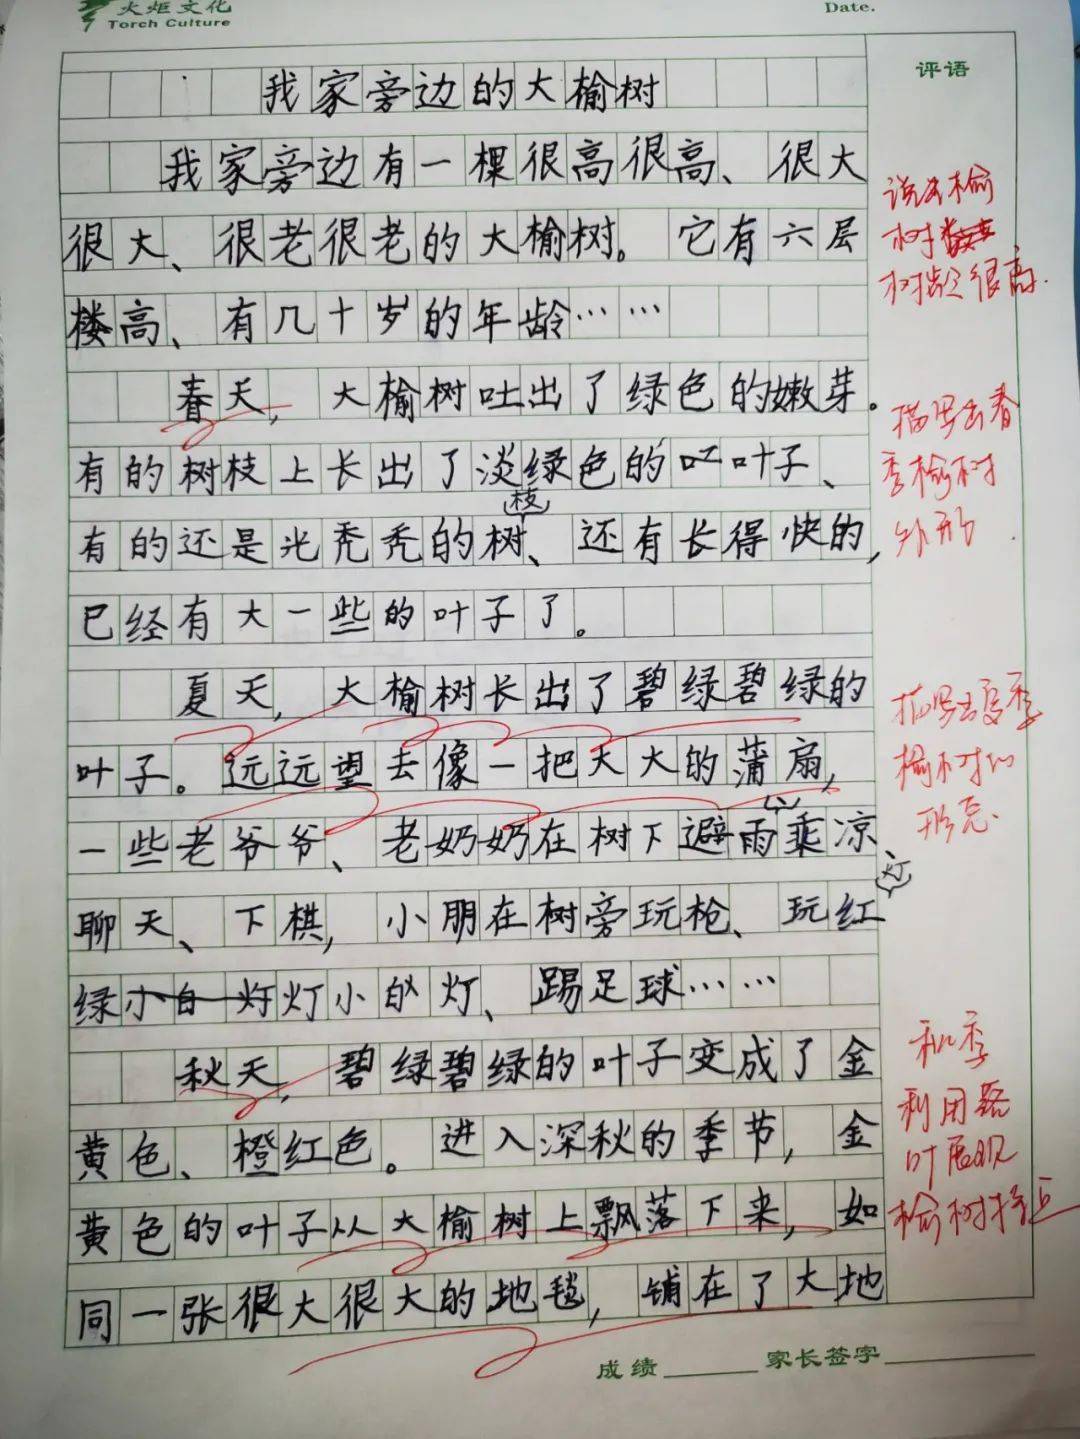 火炬文化
Torch Culture
Date.
评语
我家旁边的大榆树
我家旁边有一棵很高很高、很大
很大、很老很老的大榆树。它有六层
楼高、有几十岁的年龄……
春天，大榆树吐出了绿色的嫩芽。
有的树枝上长出了淡绿色的叶子、
枝
有的还是光秃秃的树、还有长得快的，
已经有大一些的叶子了。
夏天，大榆树长出了碧绿碧绿的
叶子。远远望去像一把大大的蒲扇，
一些老爷爷、老奶奶在树下避雨乘凉、
聊天、下棋，小朋在树旁玩枪、玩红
灯
绿小白灯灯小白灯、踢足球……
秋天，碧绿碧绿的叶子变成了金
黄色、橙红色。进入深秋的季节，金
黄色的叶子从大榆树上飘落下来，如
同一张很大很大的地毯，铺在了大地
说出榆
树
树龄很高.
描写出春
季榆树
外形
描写出夏季
榆树的
形态.
秋季
利用落
叶展现
榆树特点
成绩
家长签字